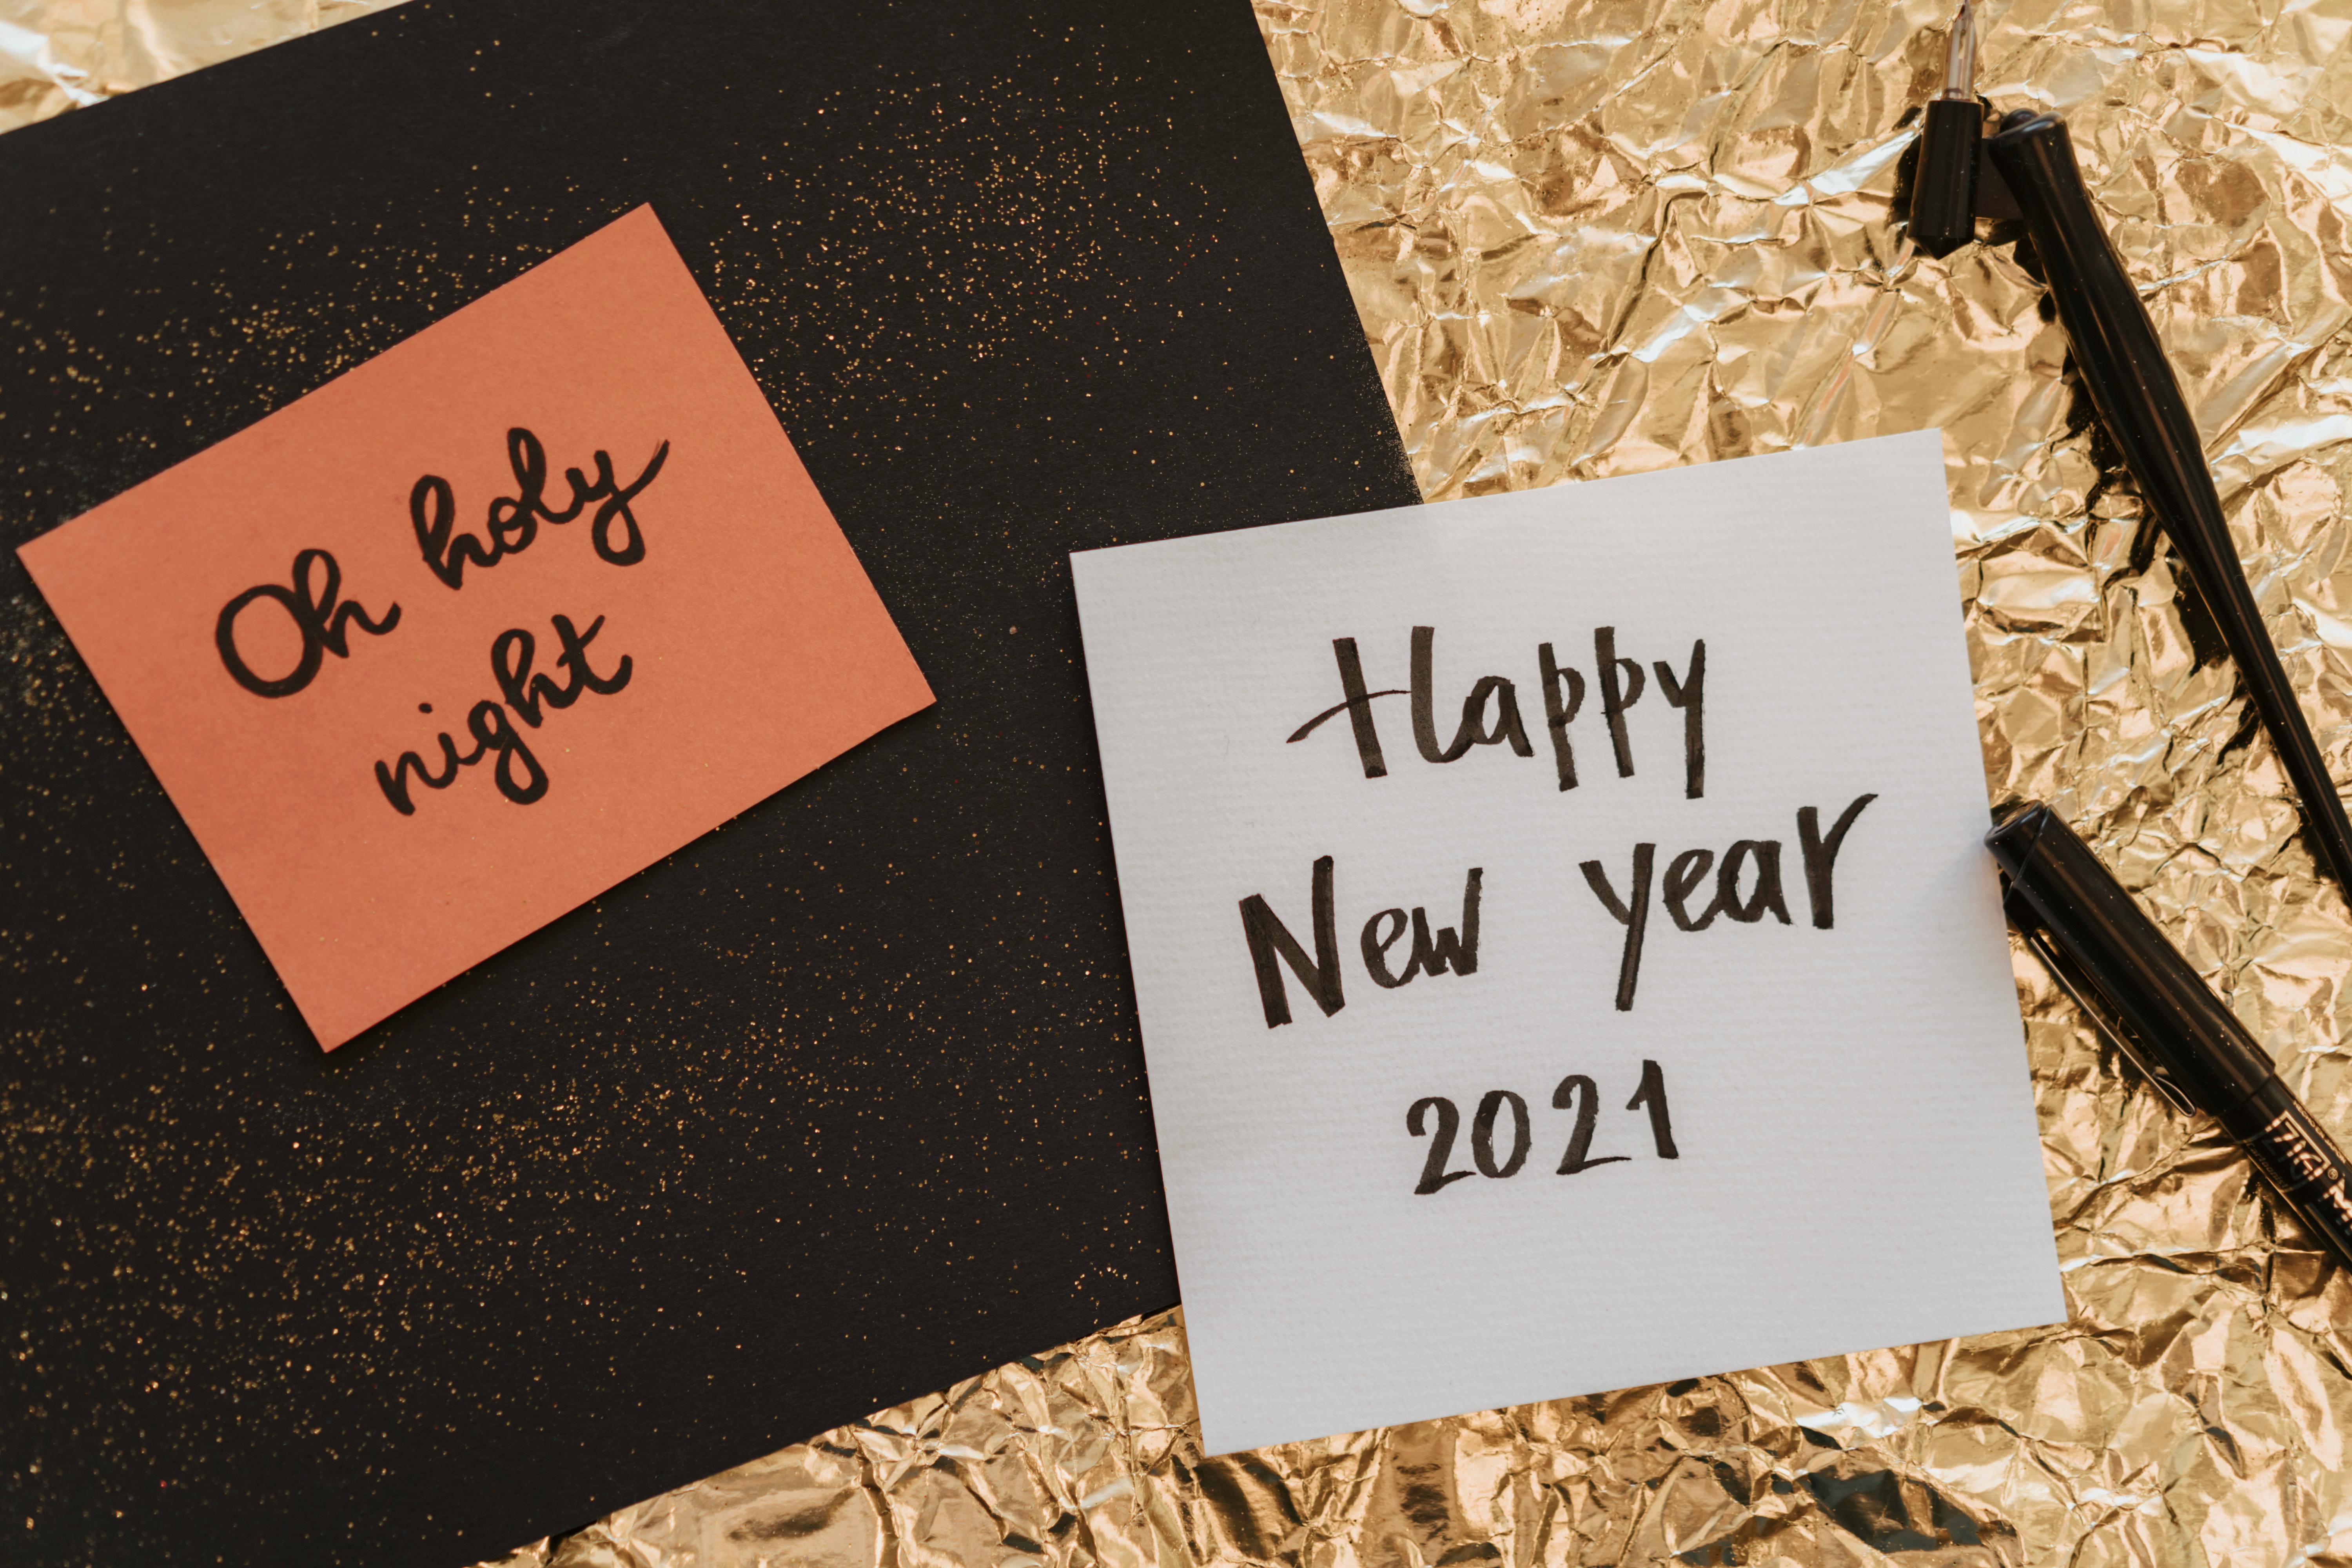 Oh holy
night
Happy
New year
2021